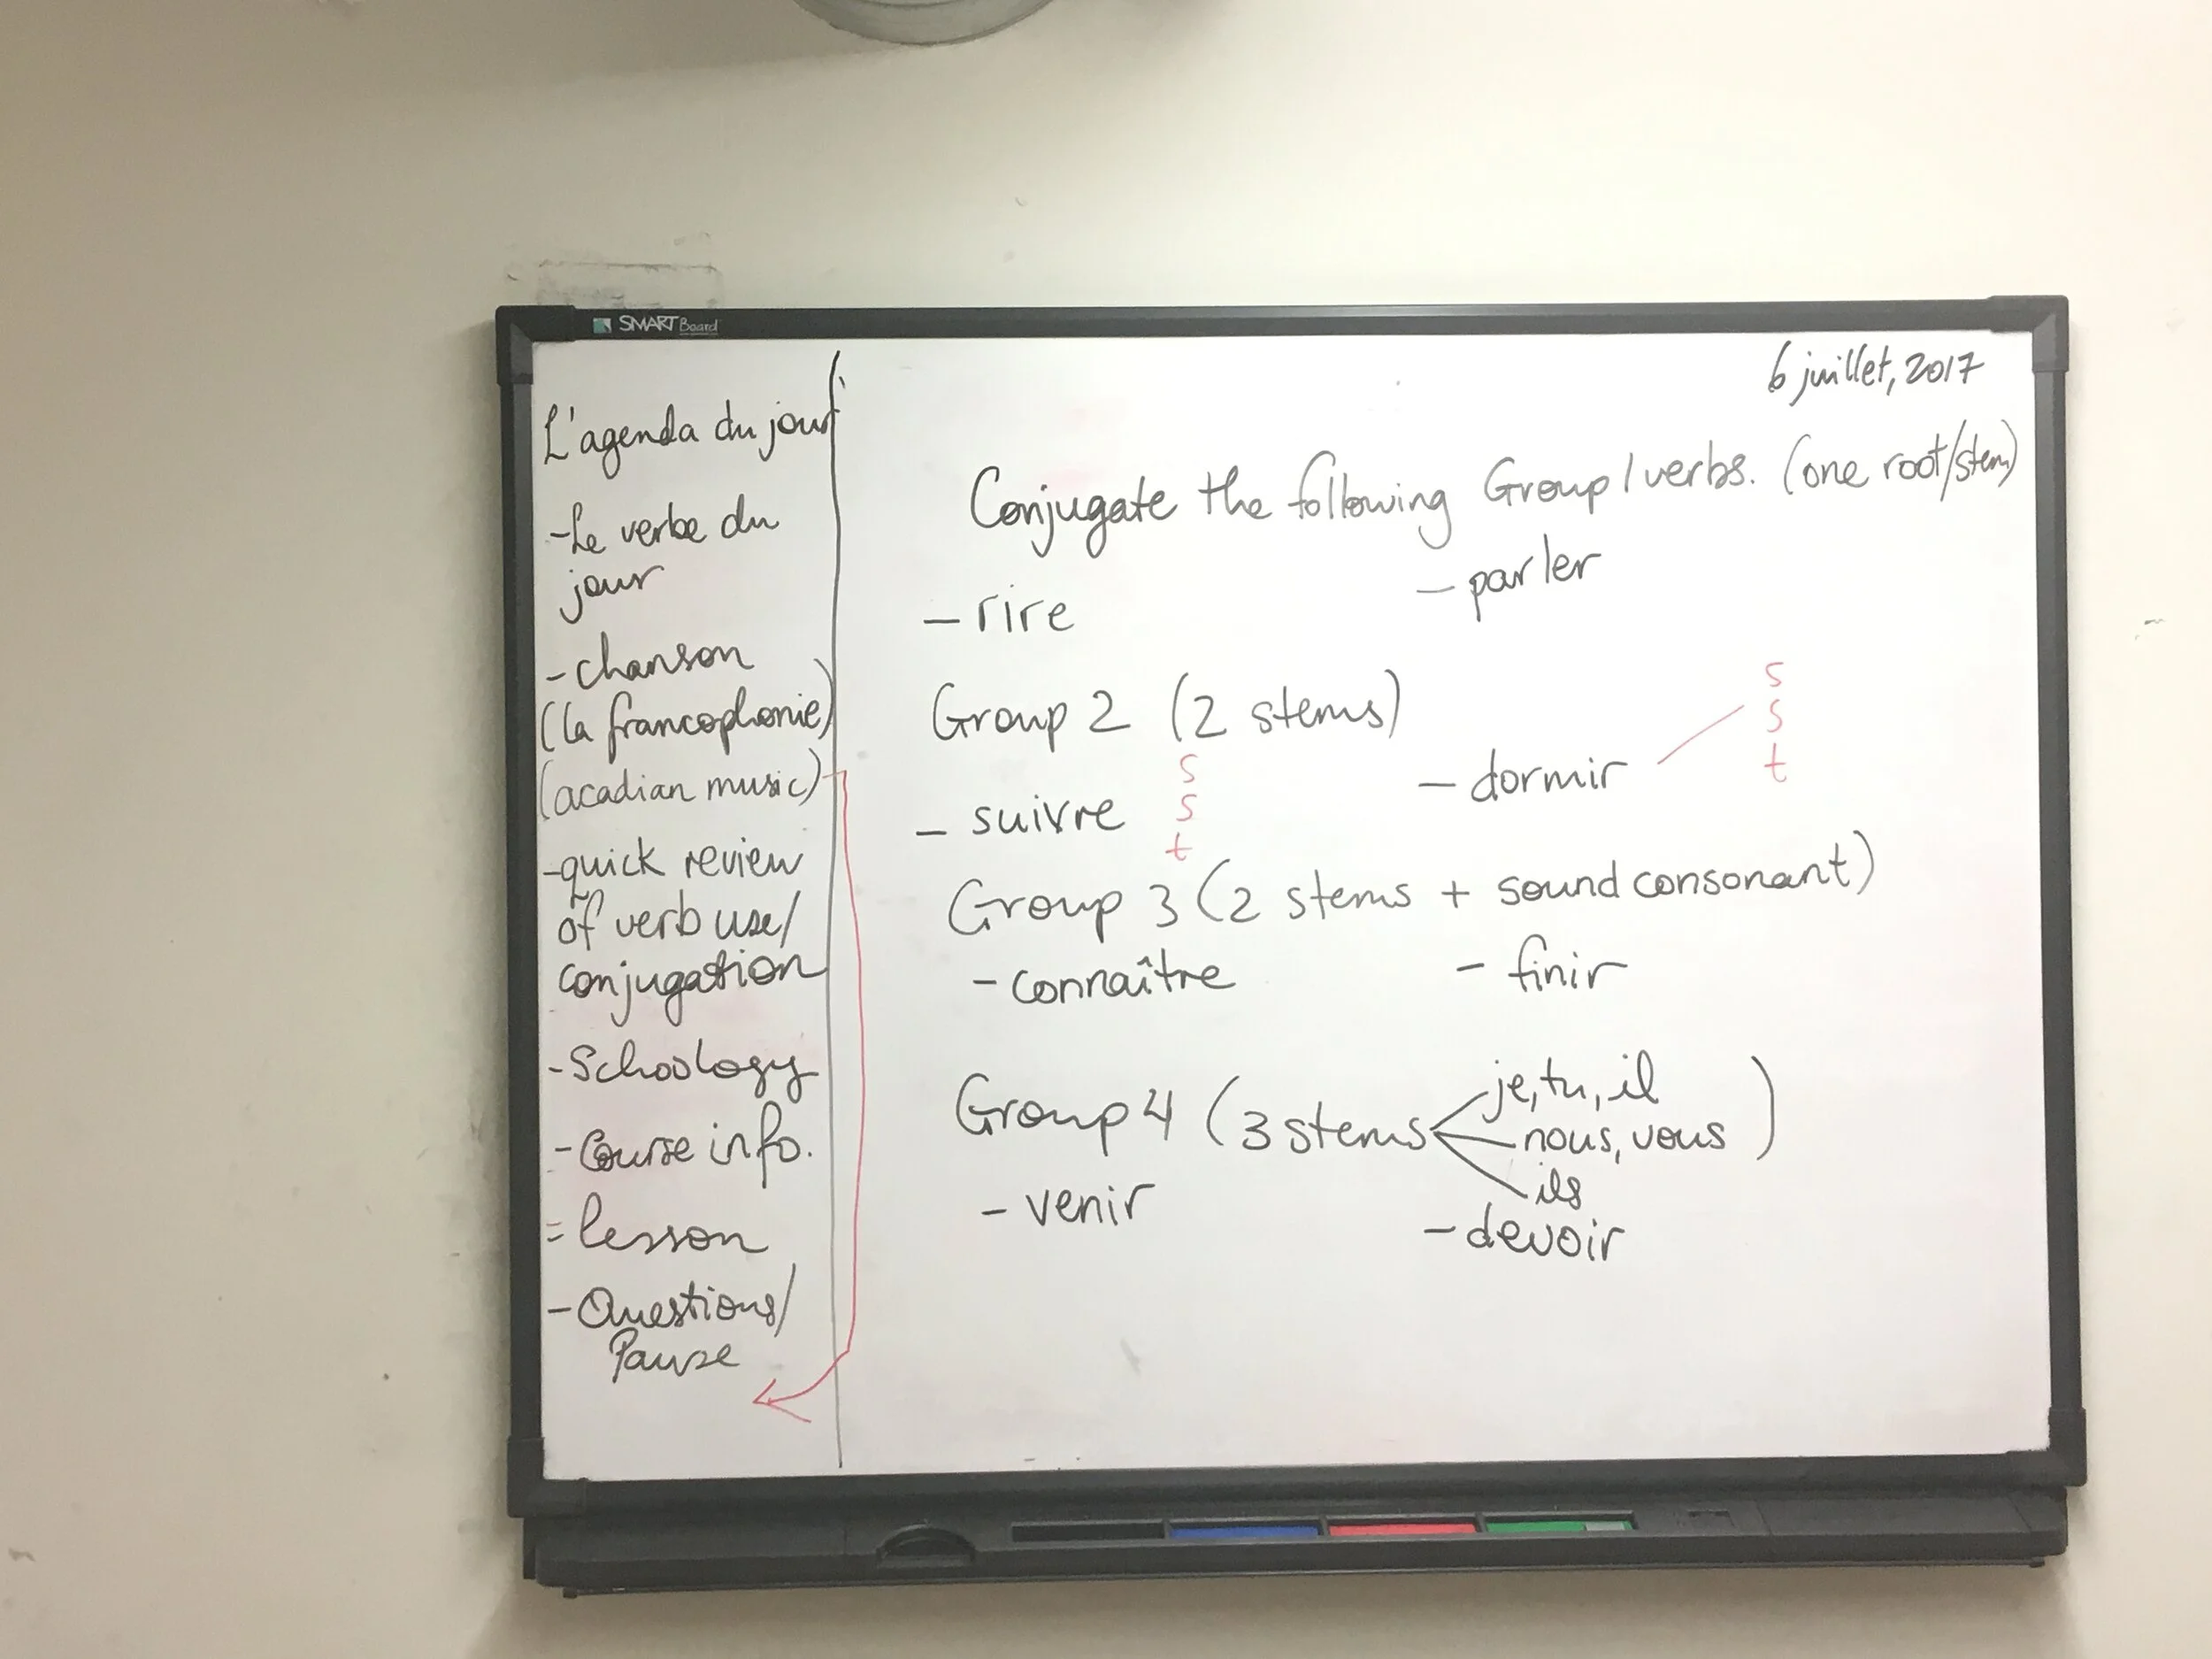 SMART Board
L'agenda du jour
-Le verbe du
jour
- chanson
(la francophonie)
(acadian music)
-quick review
of verb use/
conjugation
-Schoology
-Course info.
= lesson
- Questions/
Pause
6 juillet, 2017
Conjugate the following Group 1 verbs. (one root/stem)
- rire - parler
Group 2 (2 stems)
- suivre - dormir
s
s
t
s
s
t
Group 3 (2 stems + sound consonant)
- connaître - finir
Group 4 (3 stems
je, tu, il
nous, vous )
ils
- venir - devoir